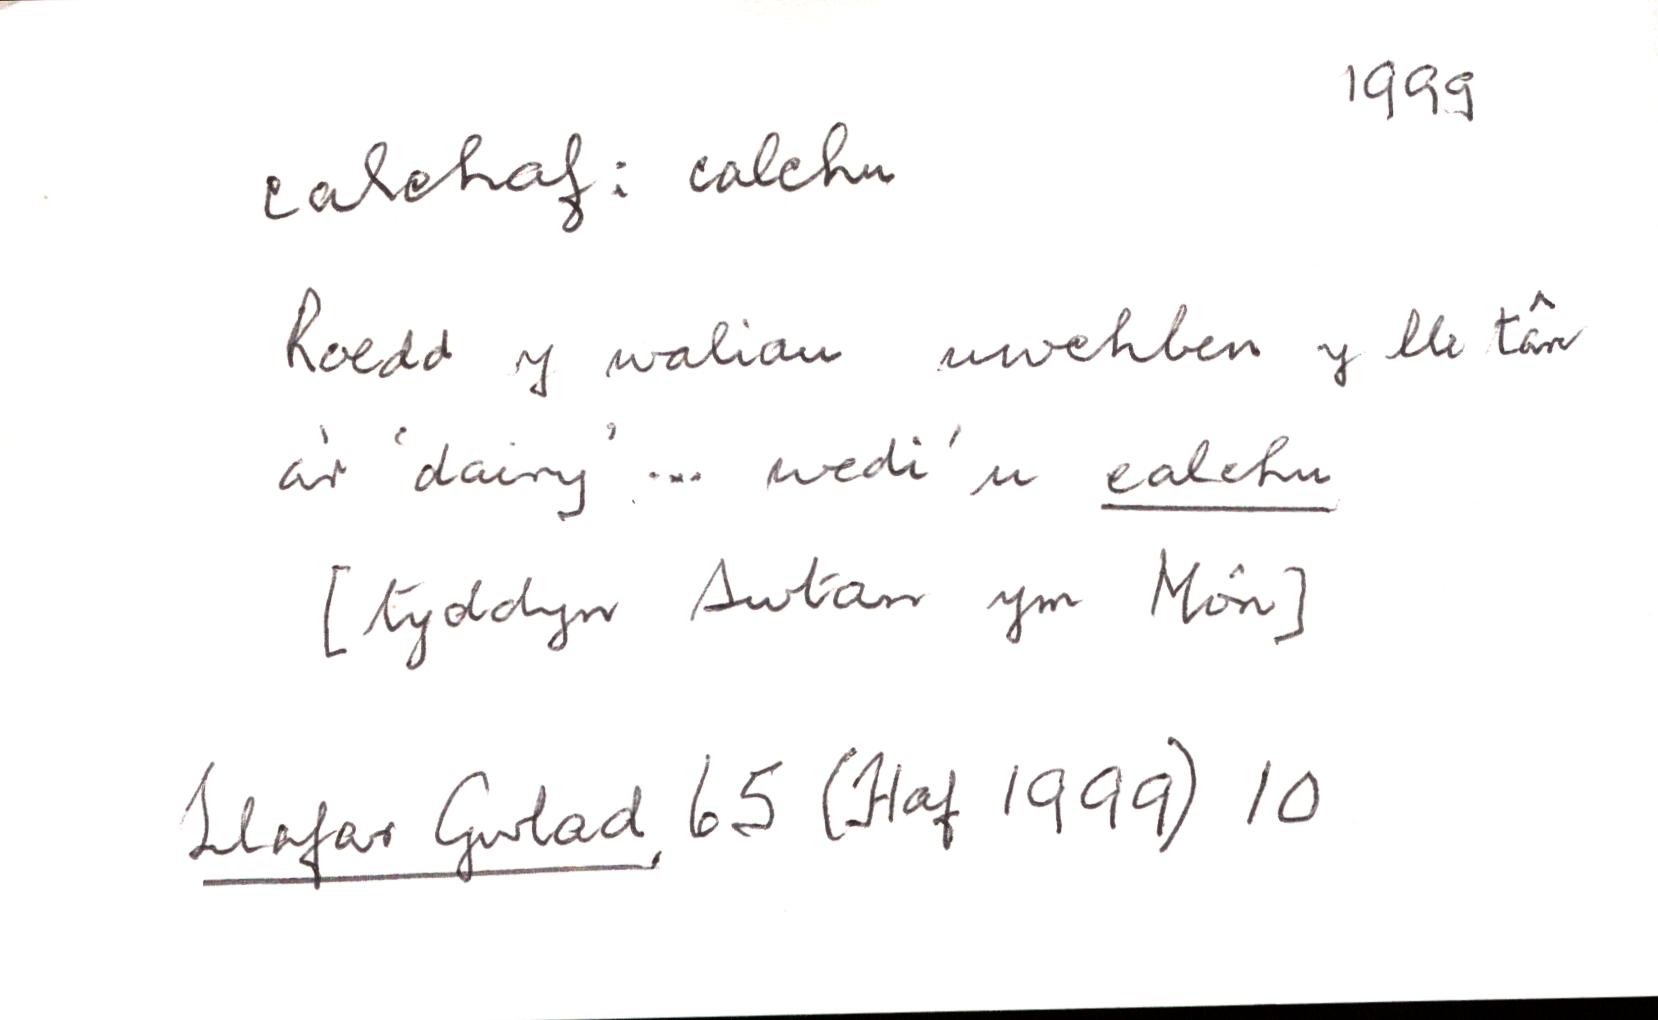 1999
calchaf: calchu
Roedd y waliau uwchben y lle tân
a'r 'dairy' ... wedi'u calchu
[tyddyn Swtan ym Môn]
Llafar Gwlad, 65 (Haf 1999) 10